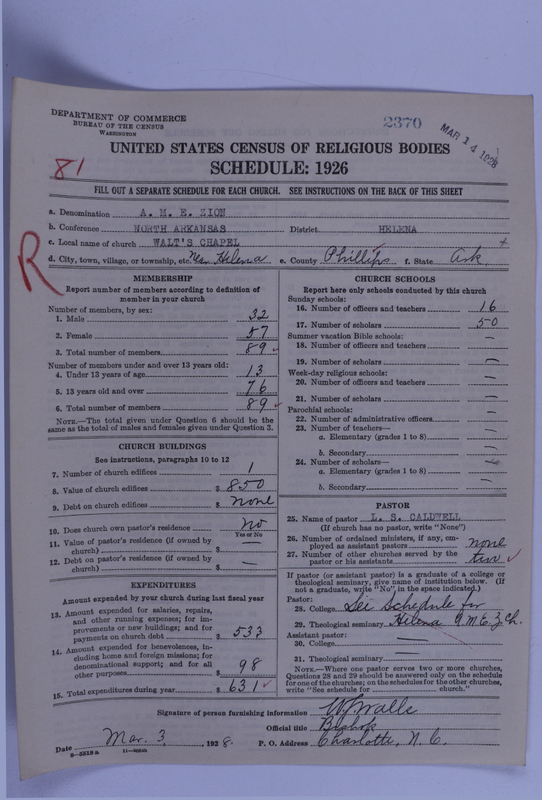 DEPARTMENT OF COMMERCE
BUREAU OF THE CENSUS
WASHINGTON
2370
MAR 14 1928
81
UNITED STATES CENSUS OF RELIGIOUS BODIES
SCHEDULE: 1926
FILL OUT A SEPARATE SCHEDULE FOR EACH CHURCH. SEE INSTRUCTIONS ON THE BACK OF THIS SHEET
R
a. Denomination A. M. E. ZION
b. Conference NORTH ARKANSAS District HELENA
c. Local name of church WALT'S CHAPEL
d. City, town, village, or township, etc. Near Helena e. County Phillips f. State Ark.
MEMBERSHIP
Report number of members according to definition of
member in your church
Number of members, by sex:
1. Male 32
2. Female 57
3. Total number of members 89
Number of members under and over 13 years old:
4. Under 13 years of age 13
5. 13 years old and over 76
6. Total number of members 89
NOTE.—The total given under Question 6 should be
same as the total of males and females given under Question 3.
CHURCH BUILDINGS
See instructions, paragraphs 10 to 12
7. Number of church edifices 1
8. Value of church edifices $ 850
9. Debt on church edifices $ none
10. Does church own pastor's residence No
Yes or No
11. Value of pastor's residence (if owned by
church) $ —
12. Debt on pastor's residence (if owned by
church) $ —
EXPENDITURES
Amount expended by your church during last fiscal year
13. Amount expended for salaries, repairs,
and other running expenses; for im-
provements or new buildings; and for
payments on church debt $ 533
14. Amount expended for benevolences, in-
cluding home and foreign missions; for
denominational support; and for all
other purposes $ 98
15. Total expenditures during year $ 631
CHURCH SCHOOLS
Report here only schools conducted by this church
Sunday schools:
16. Number of officers and teachers 16
17. Number of scholars 50
Summer vacation Bible schools:
18. Number of officers and teachers —
19. Number of scholars —
Week-day religious schools:
20. Number of officers and teachers —
21. Number of scholars —
Parochial schools:
22. Number of administrative officers —
23. Number of teachers—
a. Elementary (grades 1 to 8) —
b. Secondary —
24. Number of scholars—
a. Elementary (grades 1 to 8) —
b. Secondary —
PASTOR
25. Name of pastor L. S. CALDWELL
(If church has no pastor, write "None")
26. Number of ordained ministers, if any, em-
ployed as assistant pastors none
27. Number of other churches served by the
pastor or his assistants two
If pastor (or assistant pastor) is a graduate of a college or
theological seminary, give name of institution below. (If
not a graduate, write "No" in the space indicated.)
Pastor:
28. College See Schedule for
29. Theological seminary Helena A. M. E. Z. Ch.
Assistant pastor:
30. College —
31. Theological seminary —
NOTE.—Where one pastor serves two or more churches,
Questions 28 and 29 should be answered only on the schedule
for one of the churches; on the schedules for the other churches,
write "See schedule for ____ church."
Signature of person furnishing information W J Walls
Official title Bishop
Date Mar. 3, 1928. P. O. Address Charlotte, N. C.